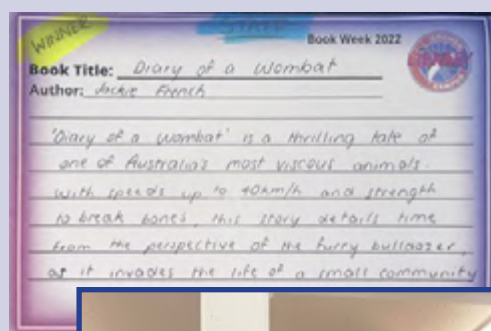 WINNER
STAFF
Book Week 2022
Book Title: Diary of a Wombat
Author: Jackie French
'Diary of a wombat' is a thrilling tale of
one of Australia's most viscous animals.
With speeds up to 40km/h and strength
to break bones, this story details time
from the perspective of the furry bulldozer,
as it invades the life of a small community